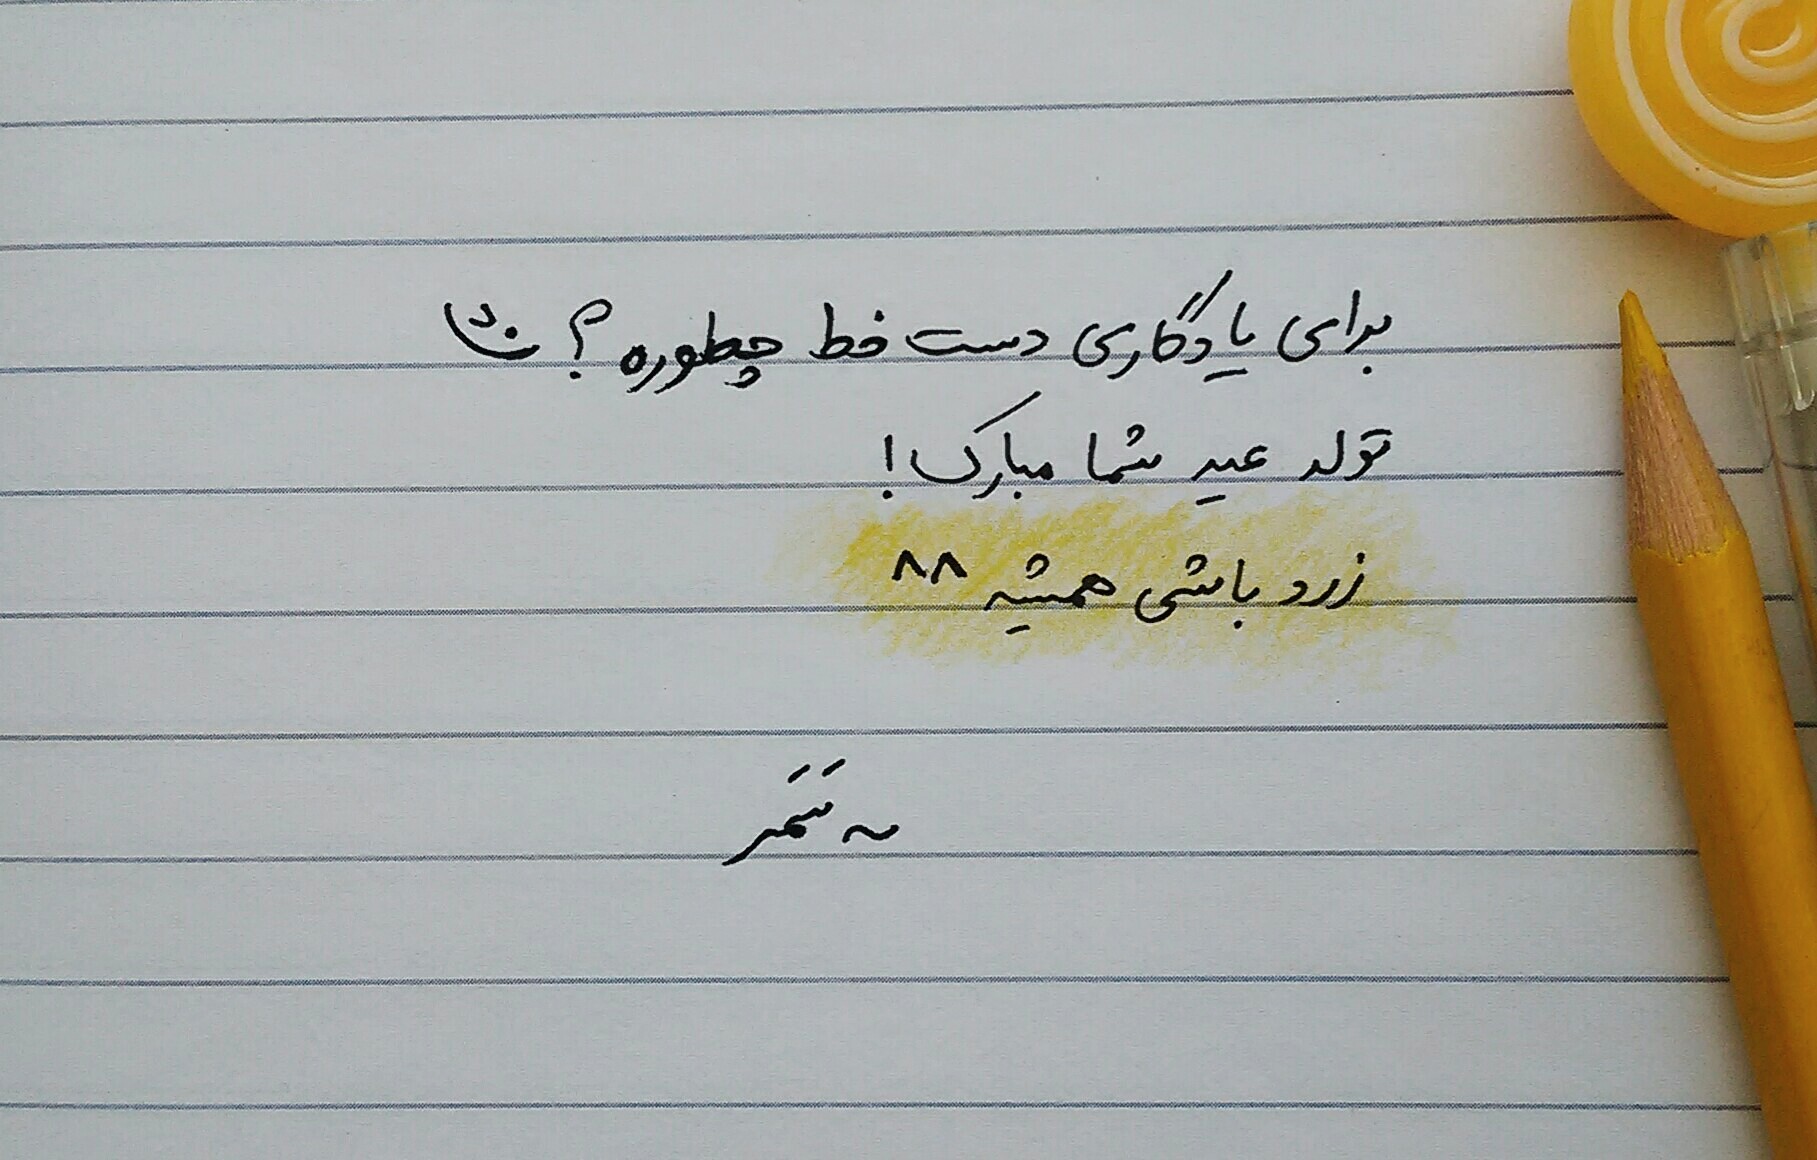 برای یادگاری دست خط چطوره؟ ت
تولد عید شما مبارک!
زرد باشی همیشه ^^